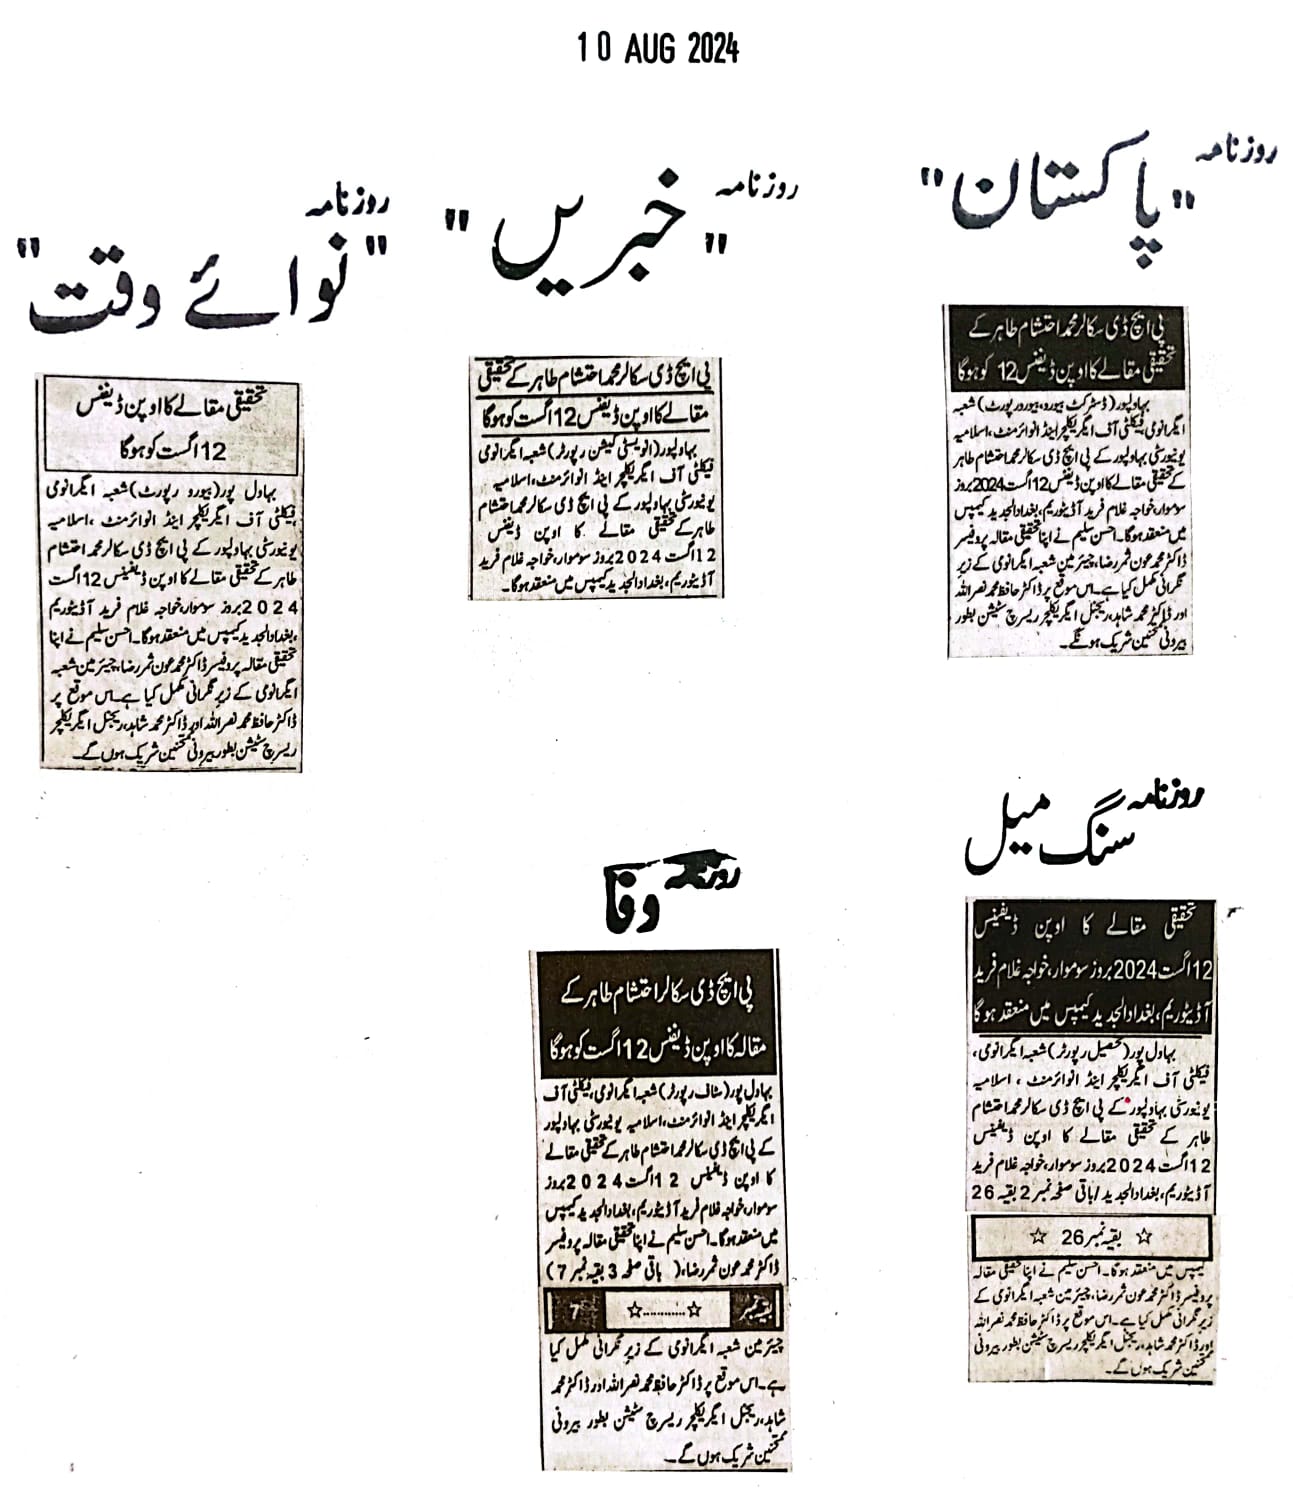 10 AUG 2024
روزنامہ
"پاکستان"
پی ایچ ڈی سکالر محمد احتشام طاہر کے
تحقیقی مقالے کا اوپن ڈیفنس 12 کو ہوگا
بہاولپور (ڈسٹرکٹ بیورو، بیورو رپورٹ) شعبہ
ایگرانومی، فیکلٹی آف ایگریکلچر اینڈ انوائرمنٹ، اسلامیہ
یونیورسٹی بہاولپور کے پی ایچ ڈی سکالر محمد احتشام طاہر
کے تحقیقی مقالے کا اوپن ڈیفنس 12 اگست 2024 بروز
سوموار، خواجہ غلام فرید آڈیٹوریم، بغداد الجدید کیمپس
میں منعقد ہوگا۔ احسن سلیم نے اپنا تحقیقی مقالہ پروفیسر
ڈاکٹر محمد عون ثمر رضا، چیئرمین شعبہ ایگرانومی کے زیر
نگرانی مکمل کیا ہے۔ اس موقع پر ڈاکٹر حافظ محمد نصر اللہ
اور ڈاکٹر محمد شاہد، ریجنل ایگریکلچر ریسرچ سٹیشن بطور
بیرونی ممتحنین شریک ہونگے۔
روزنامہ
"خبریں"
پی ایچ ڈی سکالر محمد احتشام طاہر کے تحقیقی
مقالے کا اوپن ڈیفنس 12 اگست کو ہوگا
بہاولپور (انویسٹی گیشن رپورٹر) شعبہ ایگرانومی
فیکلٹی آف ایگریکلچر اینڈ انوائرمنٹ، اسلامیہ
یونیورسٹی بہاولپور کے پی ایچ ڈی سکالر محمد احتشام
طاہر کے تحقیقی مقالے کا اوپن ڈیفنس
12 اگست 2024 بروز سوموار، خواجہ غلام فرید
آڈیٹوریم، بغداد الجدید کیمپس میں منعقد ہوگا۔
روزنامہ
"نوائے وقت"
تحقیقی مقالے کا اوپن ڈیفنس
12 اگست کو ہوگا
بہاول پور (بیورو رپورٹ) شعبہ ایگرانومی
فیکلٹی آف ایگریکلچر اینڈ انوائرمنٹ، اسلامیہ
یونیورسٹی بہاولپور کے پی ایچ ڈی سکالر محمد احتشام
طاہر کے تحقیقی مقالے کا اوپن ڈیفینس 12 اگست
2024 بروز سوموار، خواجہ غلام فرید آڈیٹوریم
، بغداد الجدید کیمپس میں منعقد ہوگا۔ احسن سلیم نے اپنا
تحقیقی مقالہ پروفیسر ڈاکٹر محمد عون ثمر رضا، چیئرمین شعبہ
ایگرانومی کے زیر نگرانی مکمل کیا ہے۔ اس موقع پر
ڈاکٹر حافظ محمد نصر اللہ اور ڈاکٹر محمد شاہد، ریجنل ایگریکلچر
ریسرچ سٹیشن بطور بیرونی ممتحنین شریک ہوں گے۔
روزنامہ
سنگ میل
تحقیقی مقالے کا اوپن ڈیفینس
12 اگست 2024 بروز سوموار، خواجہ غلام فرید
آڈیٹوریم، بغداد الجدید کیمپس میں منعقد ہوگا
بہاول پور (تحصیل رپورٹر) شعبہ ایگرانومی،
فیکلٹی آف ایگریکلچر اینڈ انوائرمنٹ، اسلامیہ
یونیورسٹی بہاولپور کے پی ایچ ڈی سکالر محمد احتشام
طاہر کے تحقیقی مقالے کا اوپن ڈیفینس
12 اگست 2024 بروز سوموار، خواجہ غلام فرید
آڈیٹوریم، بغداد الجدید / باقی صفحہ نمبر 2 بقیہ 26
☆ بقیہ نمبر 26 ☆
کیمپس میں منعقد ہوگا۔ احسن سلیم نے اپنا تحقیقی مقالہ
پروفیسر ڈاکٹر محمد عون ثمر رضا، چیئرمین شعبہ ایگرانومی کے
زیر نگرانی مکمل کیا ہے۔ اس موقع پر ڈاکٹر حافظ محمد نصر اللہ
اور ڈاکٹر محمد شاہد، ریجنل ایگریکلچر ریسرچ سٹیشن بطور بیرونی
ممتحنین شریک ہوں گے۔
روزنامہ
وفا
پی ایچ �ی سکالر احتشام طاہر کے
مقالہ کا اوپن ڈیفنس 12 اگست کو ہوگا
بہاول پور (سٹاف رپورٹر) شعبہ ایگرانومی، فیکلٹی آف
ایگریکلچر اینڈ انوائرمنٹ، اسلامیہ یونیورسٹی بہاولپور
کے پی ایچ ڈی سکالر محمد احتشام طاہر کے تحقیقی مقالے
کا اوپن ڈیفینس 12 اگست 2024 بروز
سوموار، خواجہ غلام فرید آڈیٹوریم، بغداد الجدید کیمپس
میں منعقد ہوگا۔ احسن سلیم نے اپنا تحقیقی مقالہ پروفیسر
ڈاکٹر محمد عون ثمر رضا، (باقی صفحہ 3 بقیہ نمبر 7)
بقیہ نمبر ☆..........☆ 7
چیئرمین شعبہ ایگرانومی کے زیر نگرانی مکمل کیا
ہے۔ اس موقع پر ڈاکٹر حافظ محمد نصر اللہ اور ڈاکٹر محمد
شاہد، ریجنل ایگریکلچر ریسرچ سٹیشن بطور بیرونی
ممتحنین شریک ہوں گے۔